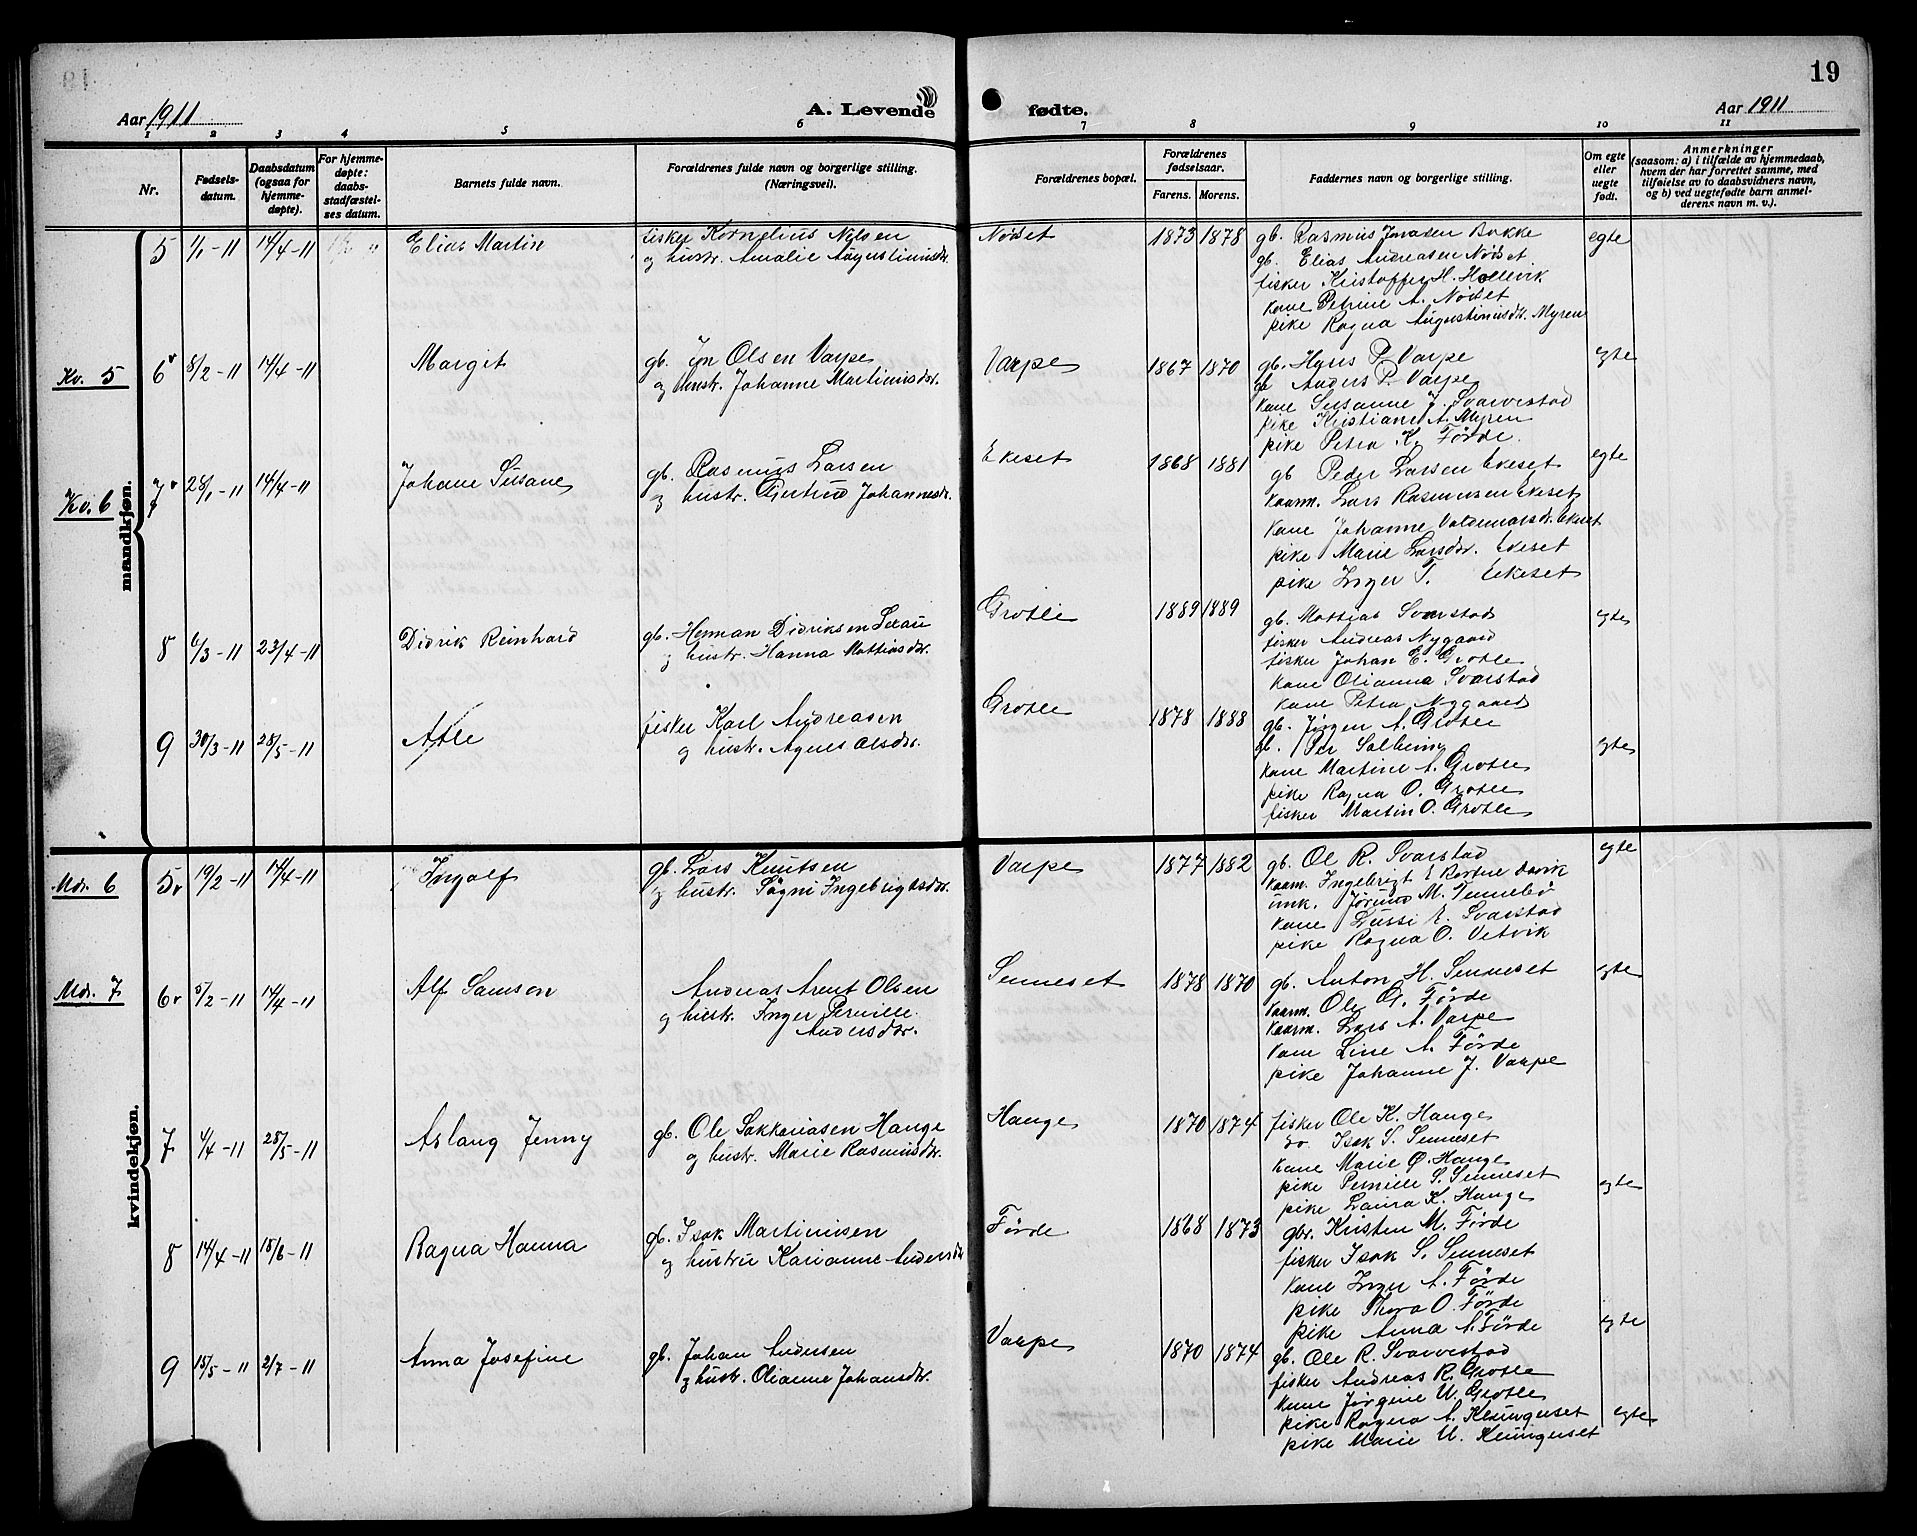 19
Aar 1911
A. Levende fødte.
Aar 1911
1 2 3 4 5 6 7 8 9 10 11
Nr.
Fødsels-datum.
Daabsdatum (ogsaa for hjemme-døpte).
For hjemme-døpte: daabs-stadfæstel-ses datum.
Barnets fulde navn.
Forældrenes fulde navn og borgerlige stilling. (Næringsvei).
Forældrenes bopæl.
Forældrenes fødselsaar.
Farens. Morens.
Faddernes navn og borgerlige stilling.
Om egte eller uegte født.
Anmerkninger
(saasom: a) i tilfælde av hjemmedaab, hvem der har forrettet samme, med tilføielse av to daabsvidners navn, og b) ved uegtefødte barn anmel-derens navn m. v.).
mandkjøn.
5 1/1-11 14/4-11 Elias Martin
fisker Kornelius Nilsen
og hustr. Amalie Augustinusdr.
Nødset 1873 1878
gb. Rasmus Jonasen Bakke
gb. Elias Andreasen Nødset
fisker Kristoffer H. Hollevik
kone Petrine A. Nødset
pike Ragna Augustinusdr. Myren
egte
Kv. 5
6 8/2-11 14/4-11 Margit
gb. Jon Olsen Varpe
og hustr. Johanne Martinusdr.
Varpe 1867 1870
gb. Hans P. Varpe
gb Anders P. Varpe
kone Susanne J. Svarvestad
pike Kristiane A. Myren
pike Petra K. Førde.
egte
Kv. 6
7 28/1-11 14/4-11 Johane Susane
gb. Rasmus Larsen
og hustr. Gjertrud Johannesdr.
Ekeset 1868 1881
gb Peder Larsen Ekeset
kaarm. Lars Rasmussen Ekeset
kone Johanne Valdemarsdr. Ekeset
pike Marie Larsdr. Ekeset
pike Inger T. Eekeset
egte
8 6/3-11 23/4-11 Didrik Reinhard
gb. Herman Didriksen
og hustr. Hanna Mattiasdr.
Grotle 1889 1889
gb. Mattias Svarstad
fisker Andreas Nygaard
fisker Johan E. Grotle
kone Olianna Svarstad
kone Petra Nygaard
egte
9 30/3-11 28/5-11 Atle
fisker Karl Andreasen
og hustr. Agnes Olsdr.
Grotle 1878 1888
gb. Jörgen A. Grotle
gb. Per Solheim
kone Martine A. Grotle
pike Ragna O. Grotle
fisker Martin O. Grotle
egte
kvindekjøn.
Md. 6
5 19/2-11 14/4-11 Ingolf
gb. Lars Knutsen
og hustr. Søgni Ingebrigtsdr.
Varpe 1877 1882
gb. Ole R. Svarstad
kaarm. Ingebrigt E
unk. M. Tennebö
kone Lussi E. Svarstad
pike Ragna O. Vetvik
egte
Md. 7
6 5/2-11 14/4-11 Alf Samson
Andreas Arent Olsen
og hustr. Inger Pernille
Andersdr.
Senneset 1878 1870
gb. Anton H. Senneset
kaarm. Ole G. Førde
kaarm. Lars A. Varpe
kone Line A. Førde
pike Johanne J. Varpe
egte
7 4/4-11 28/5-11 Aslaug Jenny
gb. Ole Sakkariasen Hauge
og hustr. Marie Rasmusdr.
Hauge 1870 1874
fisker Ole K. Hauge
do. Isak S. Senneset
kone Marie O. Hauge
pike Pernille S. Senneset
pike Laura K. Hauge
egte
8 14/4-11 18/6-11 Ragna Hanna
gb. Isak Martinusen
og hustru Karianne Andersdr
Førde 1868 1873
gbr. Kristen M. Førde
fisker Isak S. Senneset
kone Inger A. Førde
pike Thora O. Førde
pike Anna A. Førde
egte
9 15/5-11 2/7-11 Anna Josefine
gb. Johan Andersen
og hustr. Olianne Johansdr.
Varpe 1870 1874
gb. Ole R. Svarvestad
fisker Andreas R. Grotle
kone Jørgine U. Grotle
pike Ragna A. Klungreset
pike Marie U. Klungreset
egte